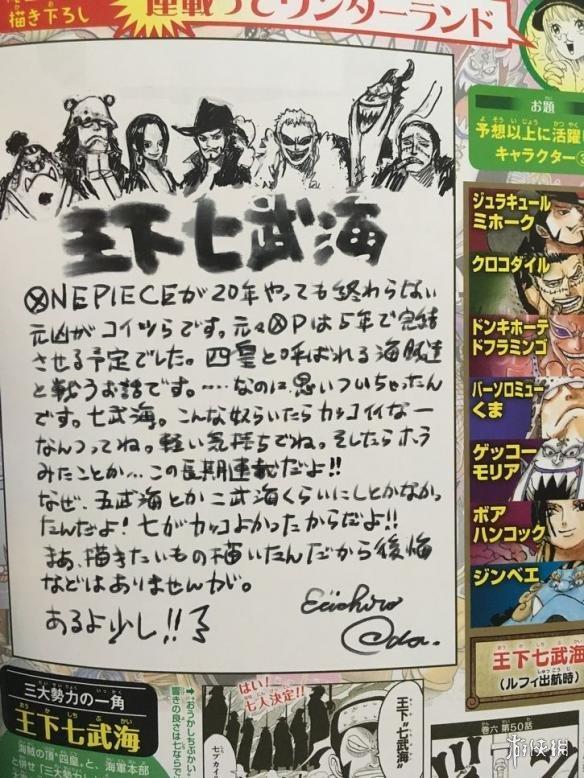 描き下ろし
連載ってワンダーランド
お題
予想以上に活躍
キャラクター
王下七武海
ⓍNE PIECEが20年やっても終わらない
元凶がコイツらです。元々ⓍPは5年で完結
させる予定でした。四皇と呼ばれる海賊達
と戦うお話です。……なのに、思いついちゃったん
です。七武海。こんな奴らいたらカッコイイなー
なんつってね。軽い気持ちでね。そしたらホラ
みたことか…この長期連載だよ!!
なぜ、五武海とか二武海くらいにしとかなかっ
たんだよ!七がカッコよかったからだよ!!
まあ、描きたいもの描いたんだから後悔
などはありませんが。
あるよ少し!!
Eiichiro
Oda.
ジュラキュール
ミホーク
クロコダイル
ドンキホーテ
ドフラミンゴ
バーソロミュー
くま
ゲッコー
モリア
ボア
ハンコック
ジンベエ
王下七武海
(ルフィ出航時)
三大勢力の一角
王下七武海
海賊の頂“四皇”と、海軍本部
と併せ“三大勢力”
はい!
七人決定!!
王下“七武海”
巻六 第50話
游侠网